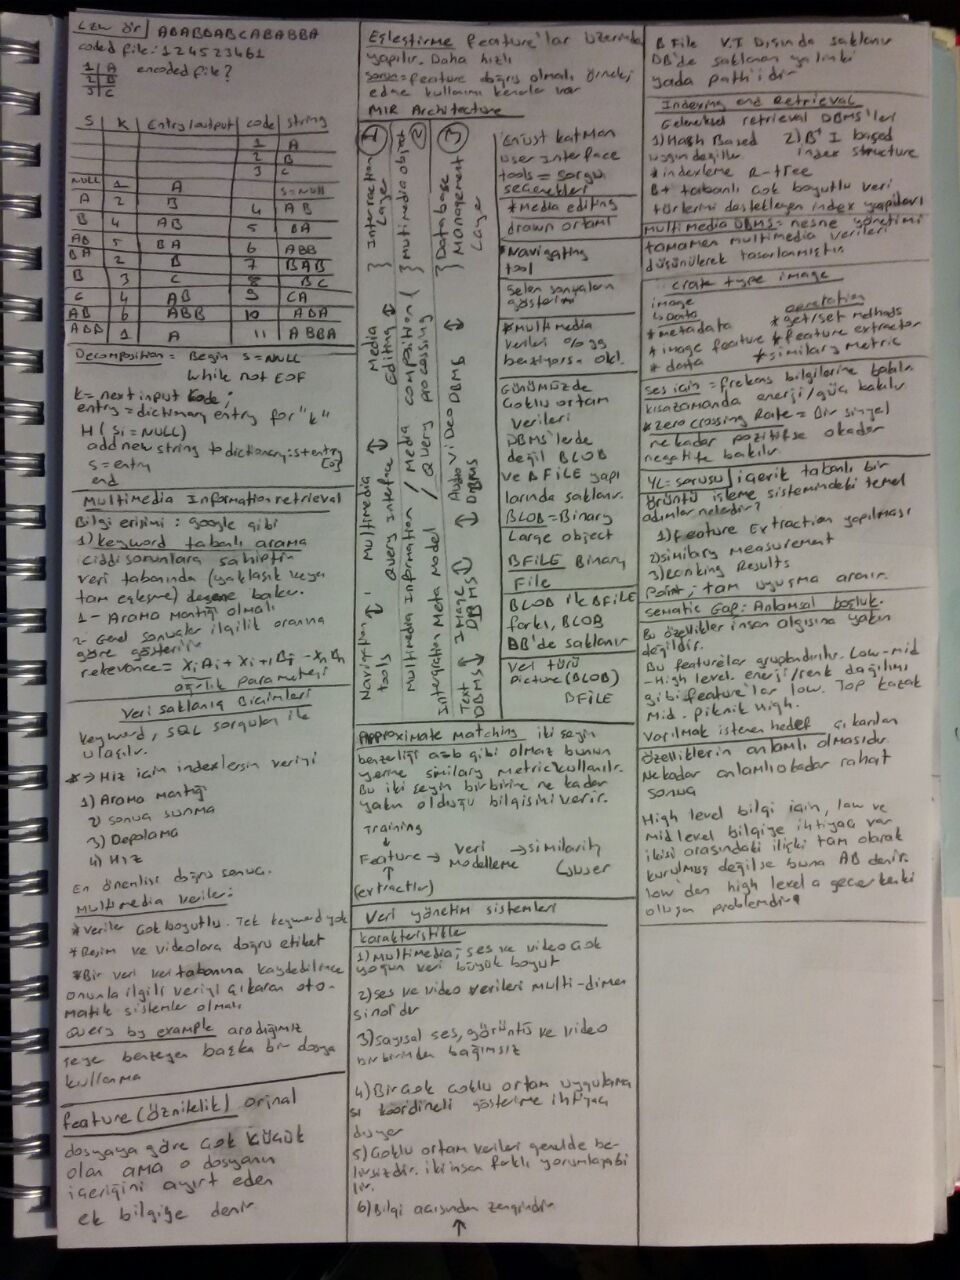 LZW ör ABABBABCABABBA
coded file: 124523461
1 A encoded file?
2 B
3 C
S K Entry/output code string
1 A
2 B
3 C
NULL 1 A S=NULL
A 2 B 4 AB
B 4 AB 5 BA
AB 5 BA 6 ABB
BA 2 B 7 BAB
B 3 C 8 BC
C 4 AB 9 CA
AB 6 ABB 10 ABA
ABB 1 A 11 ABBA
Decomposition = Begin S=NULL
While not EOF
k=next input code;
entry=dictionary entry for "k"
add new string to dictionary: s+entry [0]
s=entry
end
Multimedia Information retrieval
Bilgi erişimi: google gibi
1) keyword tabanlı arama
ciddi sorunlara sahiptir.
veri tabanında (yaklaşık veya
tam eşleşme) bakar.
1- Arama mantığı olmalı
2- Genel sonuçlar ilgilik oranına
göre gösterilir
ağırlık parametresi
Veri saklanış Biçimleri
keyword, SQL sorguları ile
ulaşılır.
*→ Hız için indexlersin veriyi
1) Arama mantığı
2) sonuç sunma
3) Depolama
4) Hız
En önemlisi doğru sonuç.
Multimedia veriler:
*Veriler çok boyutlu. Tek keyword yok
*Resim ve videolara doğru etiket
*Bir veri veri tabanına kaydedilince
onunla ilgili veriyi çıkaran oto-
matik sistemler olmalı
Query by example aradığımız
şeye benzeyen başka bir dosya
kullanma
feature (öznitelik) orjinal
dosyaya göre çok küçük
olan ama o dosyanın
içeriğini ayırt eden
ek bilgiye denir.
Eşleştirme feature'lar üzerinden
yapılır. Daha hızlı
sorun=feature doğru olmalı örneği
edge kullanımı kenarlar var
MIR Architecture
1 } Interaction Layer
2 } Multimedia object
3 } Database Management Layer
Navigation tools ↕ Multimedia Query Interface ↕ Media Editing
Multimedia Information / Media composition
Integration Meta Model / Query processing
Text DBMS ↕ Image DBMS ↕ Audio DBMS ↕ Video DBMS
En üst katman
user Interface
tools = sorgu
seçenekleri
*Media editing
Navigating
tool
gösterimi
*Multimedia
verileri % 99
benziyorsa ok!
Günümüzde
Çoklu ortam
verileri
DBMS'lerde
değil BLOB
ve BFILE yapı
larında saklanır.
BLOB=Binary
Large object
BFILE Binary
File
BLOB ile BFILE
farkı, BLOB
DB'de saklanır
Veri türü
Picture(BLOB)
BFILE
Approximate Matching iki şeyin
benzerliği a=b gibi olmaz bunun
yerine similary metric kullanılır.
Bu iki şeyin birbirine ne kadar
yakın olduğu bilgisini verir.
Training
↓
Feature → veri modelleme → similarity
↑ user
(extractor)
Veri yönetim sistemleri
karakteristikler
1) Multimedia; ses ve video çok
yoğun veri büyük boyut
2) ses ve video verileri multi-dimen
sinaldır
3) sayısal ses, görüntü ve video
birbirinden bağımsız
4) Birçok çoklu ortam uygulama
sı koordineli gösterime ihtiyaç
duyar
5) Çoklu ortam verileri genelde be-
lirsizdir. iki insan farklı yorumlayabi
lir.
6) Bilgi açısından zengindir
↑
B File V.T Dışında saklanır
DB'de saklanan ya linki
yada path'idir
Indexing and Retrieval
Geleneksel retrieval DBMS'leri
1) Hash Based 2) B+ I based
uygun değiller index structure
*indexleme R-tree
B+ tabanlı çok boyutlu veri
türlerini destekleyen index yapıları
Multimedia DBMS=nesne yönetimi
tamamen multimedia verileri
düşünülerek tasarlanmıştır.
crate type image
image operation
↳ Data *get/set methods
*metadata *feature extractor
*image feature *similary metric
*data
Ses için = frekans bilgilerine bakılır
kısa zamanda enerji/güç bakılır
*Zero crossing Rate = Bir sinyal
ne kadar pozitifse o kadar
negatife bakılır
YL= sorusu içerik tabanlı bir
görüntü işleme sistemindeki temel
adımlar nelerdir?
1) Feature Extraction yapılması
2) similary measurement
3) Ranking Results
Point; tam uyuşma aranır.
Sematic Gap: Anlamsal boşluk.
Bu özellikler insan algısına yakın
değildir.
Bu featurelar gruplandırılır. Low-mid
-High level. enerji/renk dağılımı
gibi feature'lar low. Top kazak
Mid. piknik High.
Varılmak istenen hedef çıkarılan
özelliklerin anlamlı olmasıdır.
Ne kadar anlamlı o kadar rahat
sonuç
High level bilgi için, low ve
Mid level bilgiye ihtiyaç var
ikisi arasındaki ilişki tam olarak
kurulmuş değilse buna AB denir.
low'dan high level a geçerkenki
oluşan problemdir.